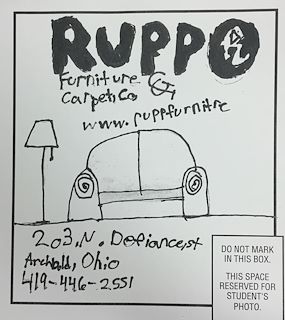 RUPPO
Furniture &
Carpet Co
www.ruppfurnitre
203.N.Defiancest
Archbald, Ohio
419-446-2551
DO NOT MARK
IN THIS BOX.
THIS SPACE
RESERVED FOR
STUDENT'S
PHOTO.